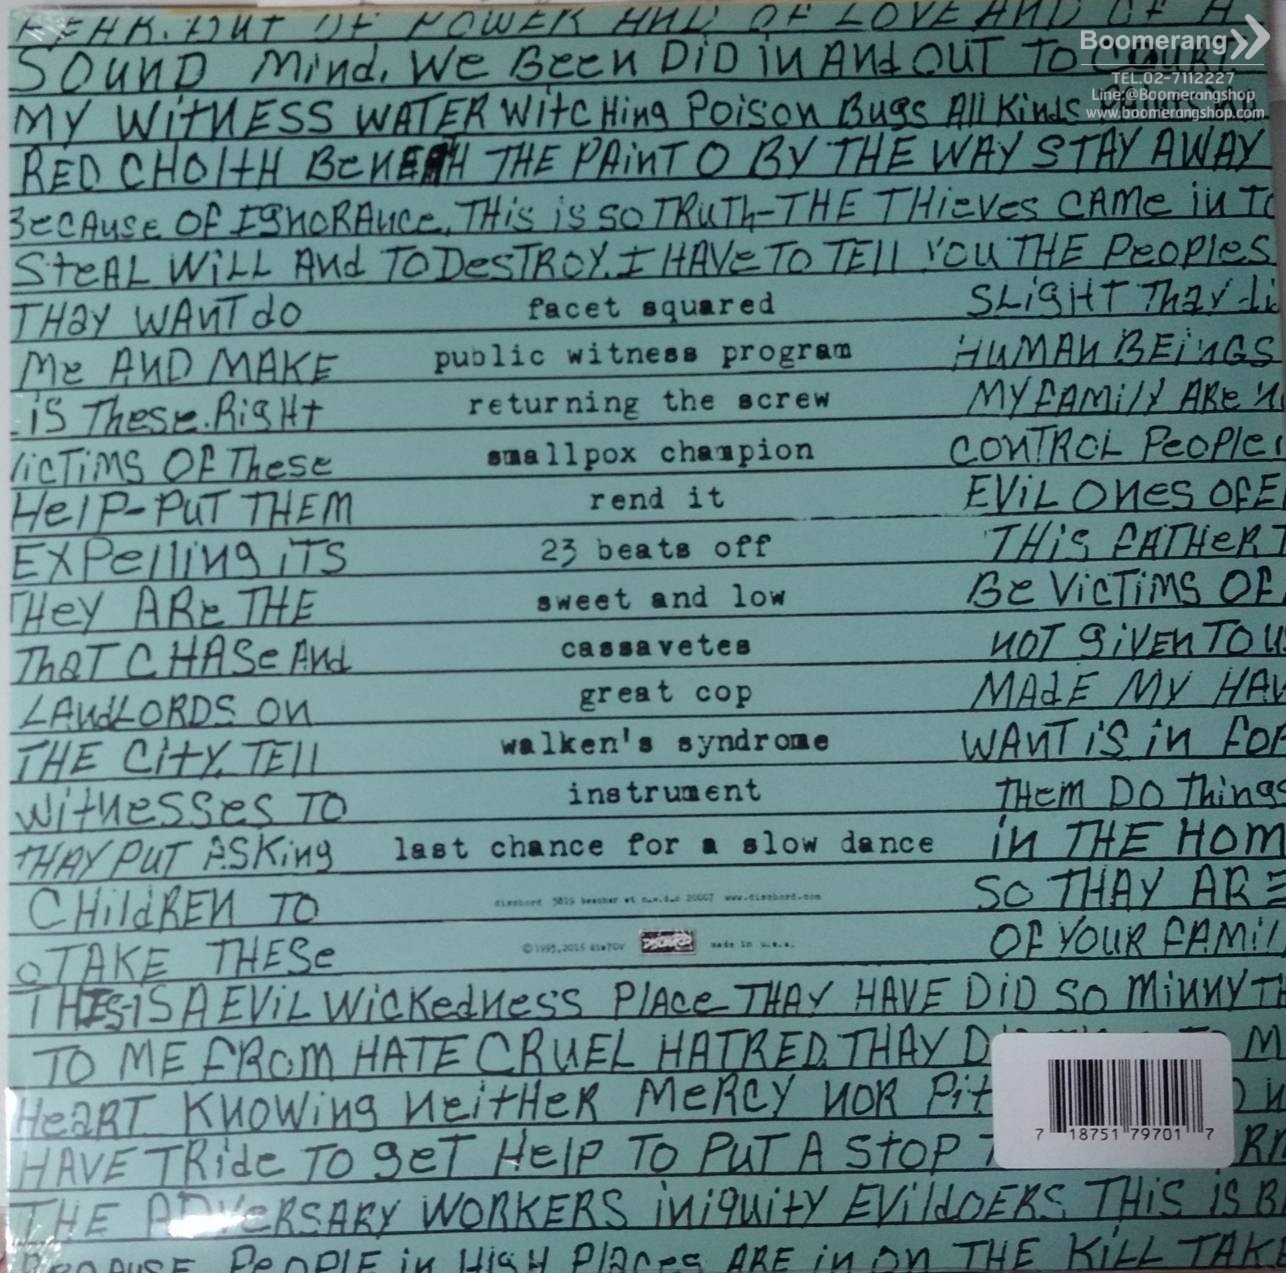 FEAR. BUT OF POWER AND OF LOVE AND OF A
Boomerang
SOUND Mind. We Been DiD in And OUT TO COURT
TEL.02-7112227
Line:@Boomerangshop
www.boomerangshop.com
MY WITNESS WATER WitcHing Poison Bugs All Kinds
RED CHOITH BENEATH THE PAinT O BY THE WAY STAY AWAY
BeCAuse OF IgnoRAnce. THis is so TRuTh-THE THieves CAMe in To
SteAL WiLL And TO DesTROY. I HAVe TO TEll YOU THE PeoPles
THay WANT do facet squared SLigHT THay
Me AND MAKE public witness program HUMAN BEiNGS
iS These. RigHt returning the screw MY FAMilY ARe
VicTiMS OF These smallpox champion CONTROL PeoPle
HelP-PUT THEM rend it EViL Ones OF
EXPelling iTS 23 beats off THis FATHeR
THeY ARe THE sweet and low Be VicTiMS OF
THaT CHASe And cassavetes NOT giVEN TO
LAndLORDS ON great cop MAdE MY
THE CiTY. TEll walken's syndrome WANT iS in FOR
WitNesses TO instrument THem DO THings
THAY PUT ASKing last chance for a slow dance iN THE HOM
CHildREN TO dischord 3819 beecher st n.w.d.c 20007 www.dischord.com SO THAY ARE
TAKE THESe ©1993,2016 dis70v DISCHORD made in u.s.a. OF YOUR FAMiL
THIS-IS A EViL WicKedness PlAce THAY HAVE DiD SO MiNNY
TO ME FROM HATE CRUEL HATRED. THAY
HeaRT KNOWing NeitHeR MeRCY NOR Pit
HAVE TRide TO geT Help TO PUT A StOP
7 18751 79701 7
THE ADVeRSARY WORKERS iNiquity EVildOERS THiS iS
BECAUSE PeoPLE iN HigH PlAces ARE in ON THE KiLL TAKE